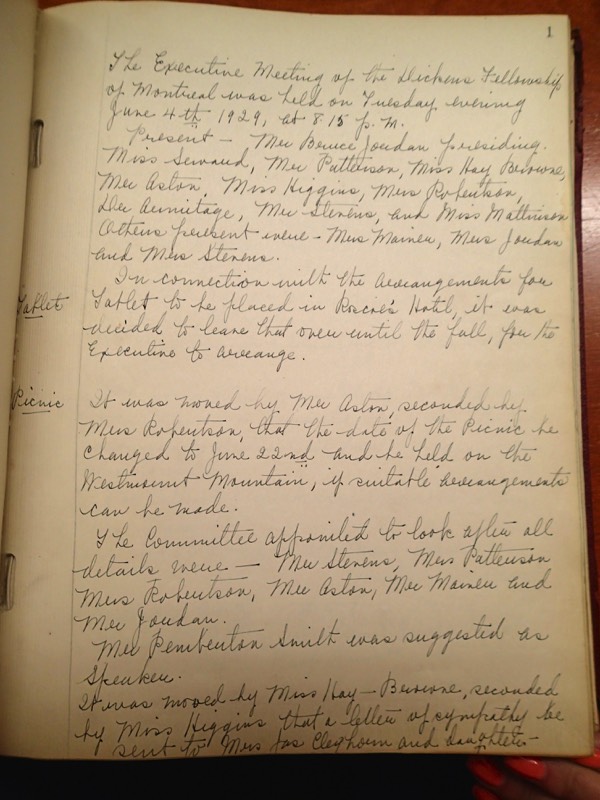 1
The Executive Meeting of the Dickens Fellowship
of Montreal was held on Tuesday evening
June 4th 1929, at 8 15 p.m.
Present — Mr Bruce Jordan presiding.
Miss Seward, Mr Patterson, Miss Hay Browne,
Mr Aston, Miss Higgins, Mrs Robertson,
Dr Armitage, Mr Stevens, and Miss Mathison
Others present were — Mrs Mainer, Mrs Jordan
and Mrs Stevens.
In connection with the arrangements for
Tablet
Tablet to be placed in Rascoe's Hotel, it was
decided to leave that over until the fall, for the
Executive to arrange.
Picnic
It was moved by Mr Aston, seconded by
Mrs Robertson, that the date of the Picnic be
changed to June 22nd and be held on the
Westmount "Mountain", if suitable arrangements
can be made.
The Committee appointed to look after all
details were — Mr Stevens, Mrs Patterson
Mrs Robertson, Mr Aston, Mr Mainer and
Mr Jordan.
Mr Pemberton Smith was suggested as
Speaker.
It was moved by Miss Hay-Browne, seconded
by Miss Higgins that a letter of sympathy be
sent to Mrs Jas Cleghorn and daughter